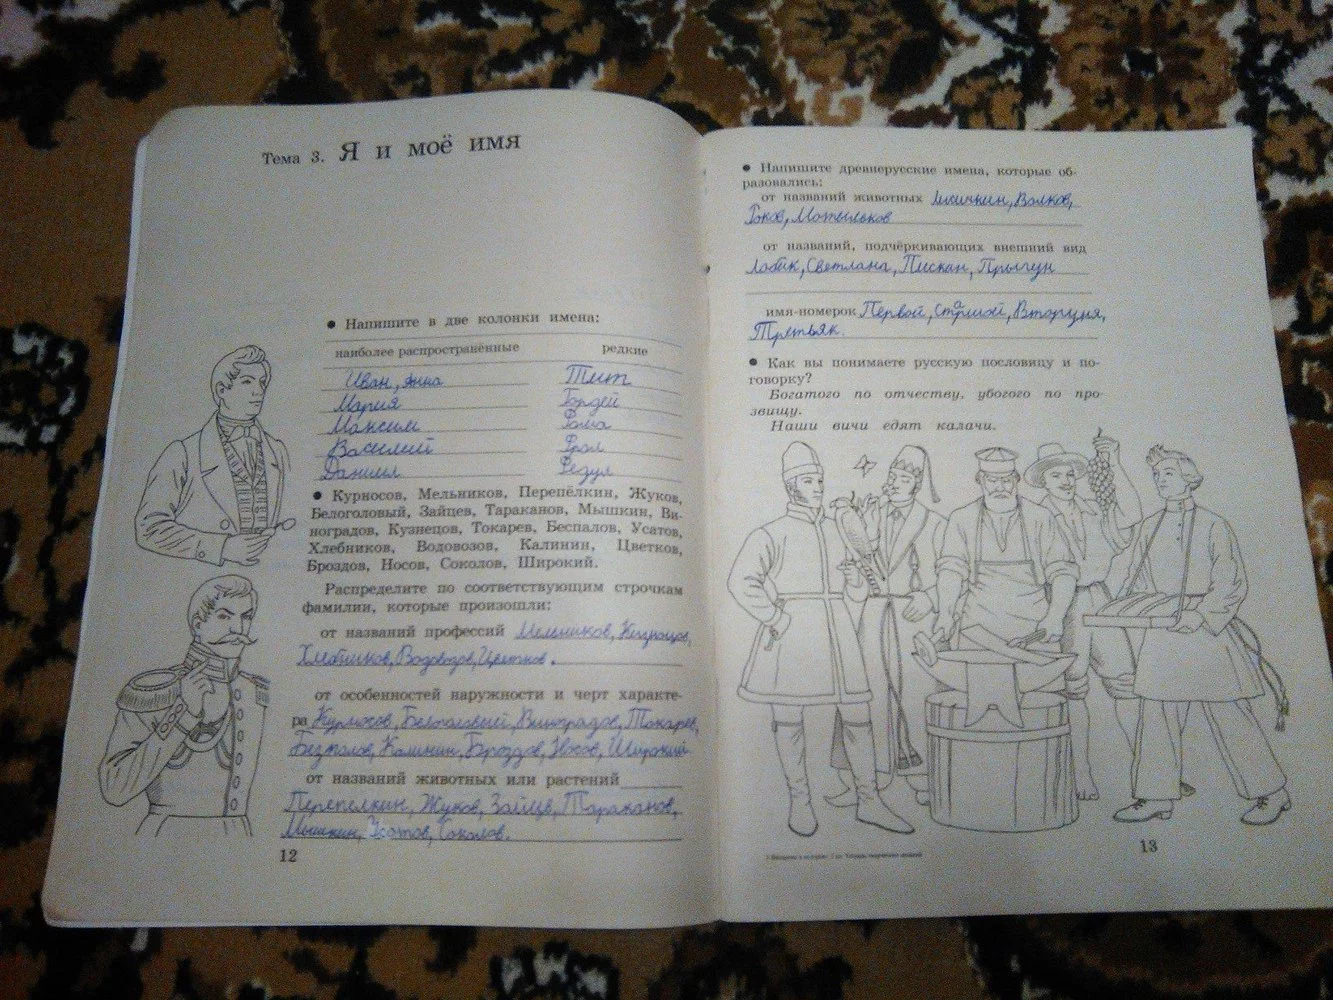 Тема 3. Я и моё имя
● Напишите в две колонки имена:
наиболее распространённые редкие
Иван, Анна Тит
Мария Гордей
Максим Фома
Василий Фрол
Даниил
● Курносов, Мельников, Перепёлкин, Жуков,
Белоголовый, Зайцев, Тараканов, Мышкин, Ви-
ноградов, Кузнецов, Токарев, Беспалов, Усатов,
Хлебников, Водовозов, Калинин, Цветков,
Броздов, Носов, Соколов, Широкий.
Распределите по соответствующим строчкам
фамилии, которые произошли:
от названий профессий Мельников, Кузнецов,
Хлебников, Водовозов, Цветков.
от особенностей наружности и черт характе-
ра Курносов, Белоголовый, Виноградов, Токарев,
Калинин, Броздов, Носов, Широкий
от названий животных или растений
Перепелкин, Жуков, Зайцев, Тараканов,
Мышкин, Усатов, Соколов.
12
● Напишите древнерусские имена, которые об-
разовались:
от названий животных Волков,
Мотыльков
от названий, подчёркивающих внешний вид
Лобик, Светлана, Пискан, Прыгун
имя-номерок Первой, Старшой,
Третьяк.
● Как вы понимаете русскую пословицу и по-
говорку?
Богатого по отчеству, убогого по про-
звищу.
Наши вичи едят калачи.
13